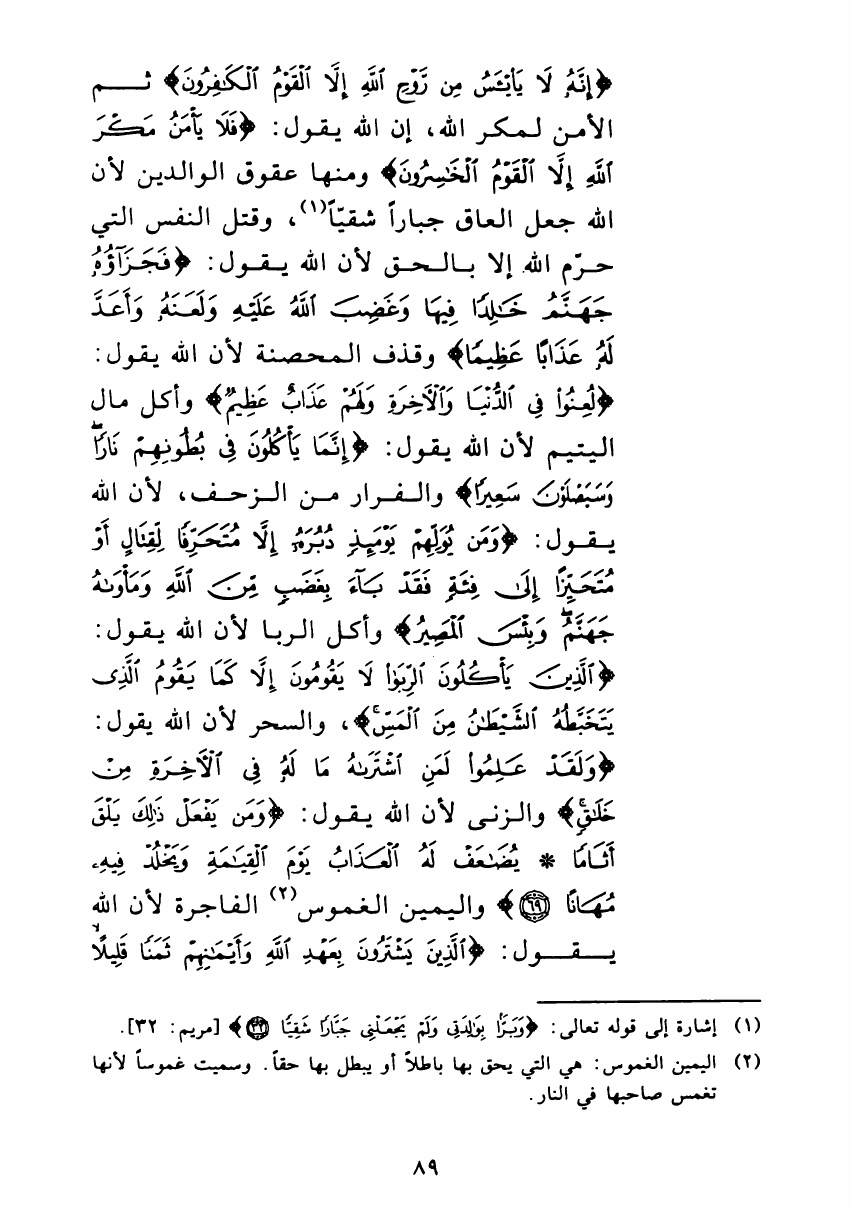 ﴿إِنَّهُۥ لَا يَاْيْـَٔسُ مِن رَّوْحِ ٱللَّهِ إِلَّا ٱلْقَوْمُ ٱلْكَـٰفِرُونَ﴾ ثـــم
الأمن لمكر الله، إن الله يقول: ﴿فَلَا يَأْمَنُ مَكْرَ
ٱللَّهِ إِلَّا ٱلْقَوْمُ ٱلْخَـٰسِرُونَ﴾ ومنها عقوق الوالدين لأن
الله جعل العاق جباراً شقيّاً(١)، وقتل النفس التي
حرّم الله إلا بالحق لأن الله يقول: ﴿فَجَزَآؤُهُۥ
جَهَنَّمُ خَـٰلِدًا فِيهَا وَغَضِبَ ٱللَّهُ عَلَيْهِ وَلَعَنَهُۥ وَأَعَدَّ
لَهُۥ عَذَابًا عَظِيمًا﴾ وقذف المحصنة لأن الله يقول:
﴿لُعِنُوا۟ فِى ٱلدُّنْيَا وَٱلْـَٔاخِرَةِ وَلَهُمْ عَذَابٌ عَظِيمٌ﴾ وأكل مال
اليتيم لأن الله يقول: ﴿إِنَّمَا يَأْكُلُونَ فِى بُطُونِهِمْ نَارًا ۖ
وَسَيَصْلَوْنَ سَعِيرًا﴾ والفرار من الزحف، لأن الله
يقول: ﴿وَمَن يُوَلِّهِمْ يَوْمَئِذٍ دُبُرَهُۥٓ إِلَّا مُتَحَرِّفًا لِّقِتَالٍ أَوْ
مُتَحَيِّزًا إِلَىٰ فِئَةٍ فَقَدْ بَآءَ بِغَضَبٍ مِّنَ ٱللَّهِ وَمَأْوَىٰهُ
جَهَنَّمُ ۖ وَبِئْسَ ٱلْمَصِيرُ﴾ وأكل الربا لأن الله يقول:
﴿ٱلَّذِينَ يَأْكُلُونَ ٱلرِّبَوٰا۟ لَا يَقُومُونَ إِلَّا كَمَا يَقُومُ ٱلَّذِى
يَتَخَبَّطُهُ ٱلشَّيْطَـٰنُ مِنَ ٱلْمَسِّ ۚ﴾، والسحر لأن الله يقول:
﴿وَلَقَدْ عَلِمُوا۟ لَمَنِ ٱشْتَرَىٰهُ مَا لَهُۥ فِى ٱلْـَٔاخِرَةِ مِنْ
خَلَـٰقٍ ۚ﴾ والزنى لأن الله يقول: ﴿وَمَن يَفْعَلْ ذَٰلِكَ يَلْقَ
أَثَامًا * يُضَـٰعَفْ لَهُ ٱلْعَذَابُ يَوْمَ ٱلْقِيَـٰمَةِ وَيَخْلُدْ فِيهِۦ
مُهَانًا ٦٩﴾ واليمين الغموس(٢) الفاجرة لأن الله
يـــقـــول: ﴿ٱلَّذِينَ يَشْتَرُونَ بِعَهْدِ ٱللَّهِ وَأَيْمَـٰنِهِمْ ثَمَنًا قَلِيلًا
(١) إشارة إلى قوله تعالى: ﴿وَبَرًّۢا بِوَٰلِدَتِى وَلَمْ يَجْعَلْنِى جَبَّارًا شَقِيًّا ٣٢﴾ [مريم: ٣٢].
(٢) اليمين الغموس: هي التي يحق بها باطلاً أو يبطل بها حقاً. وسميت غموساً لأنها
تغمس صاحبها في النار.
٨٩